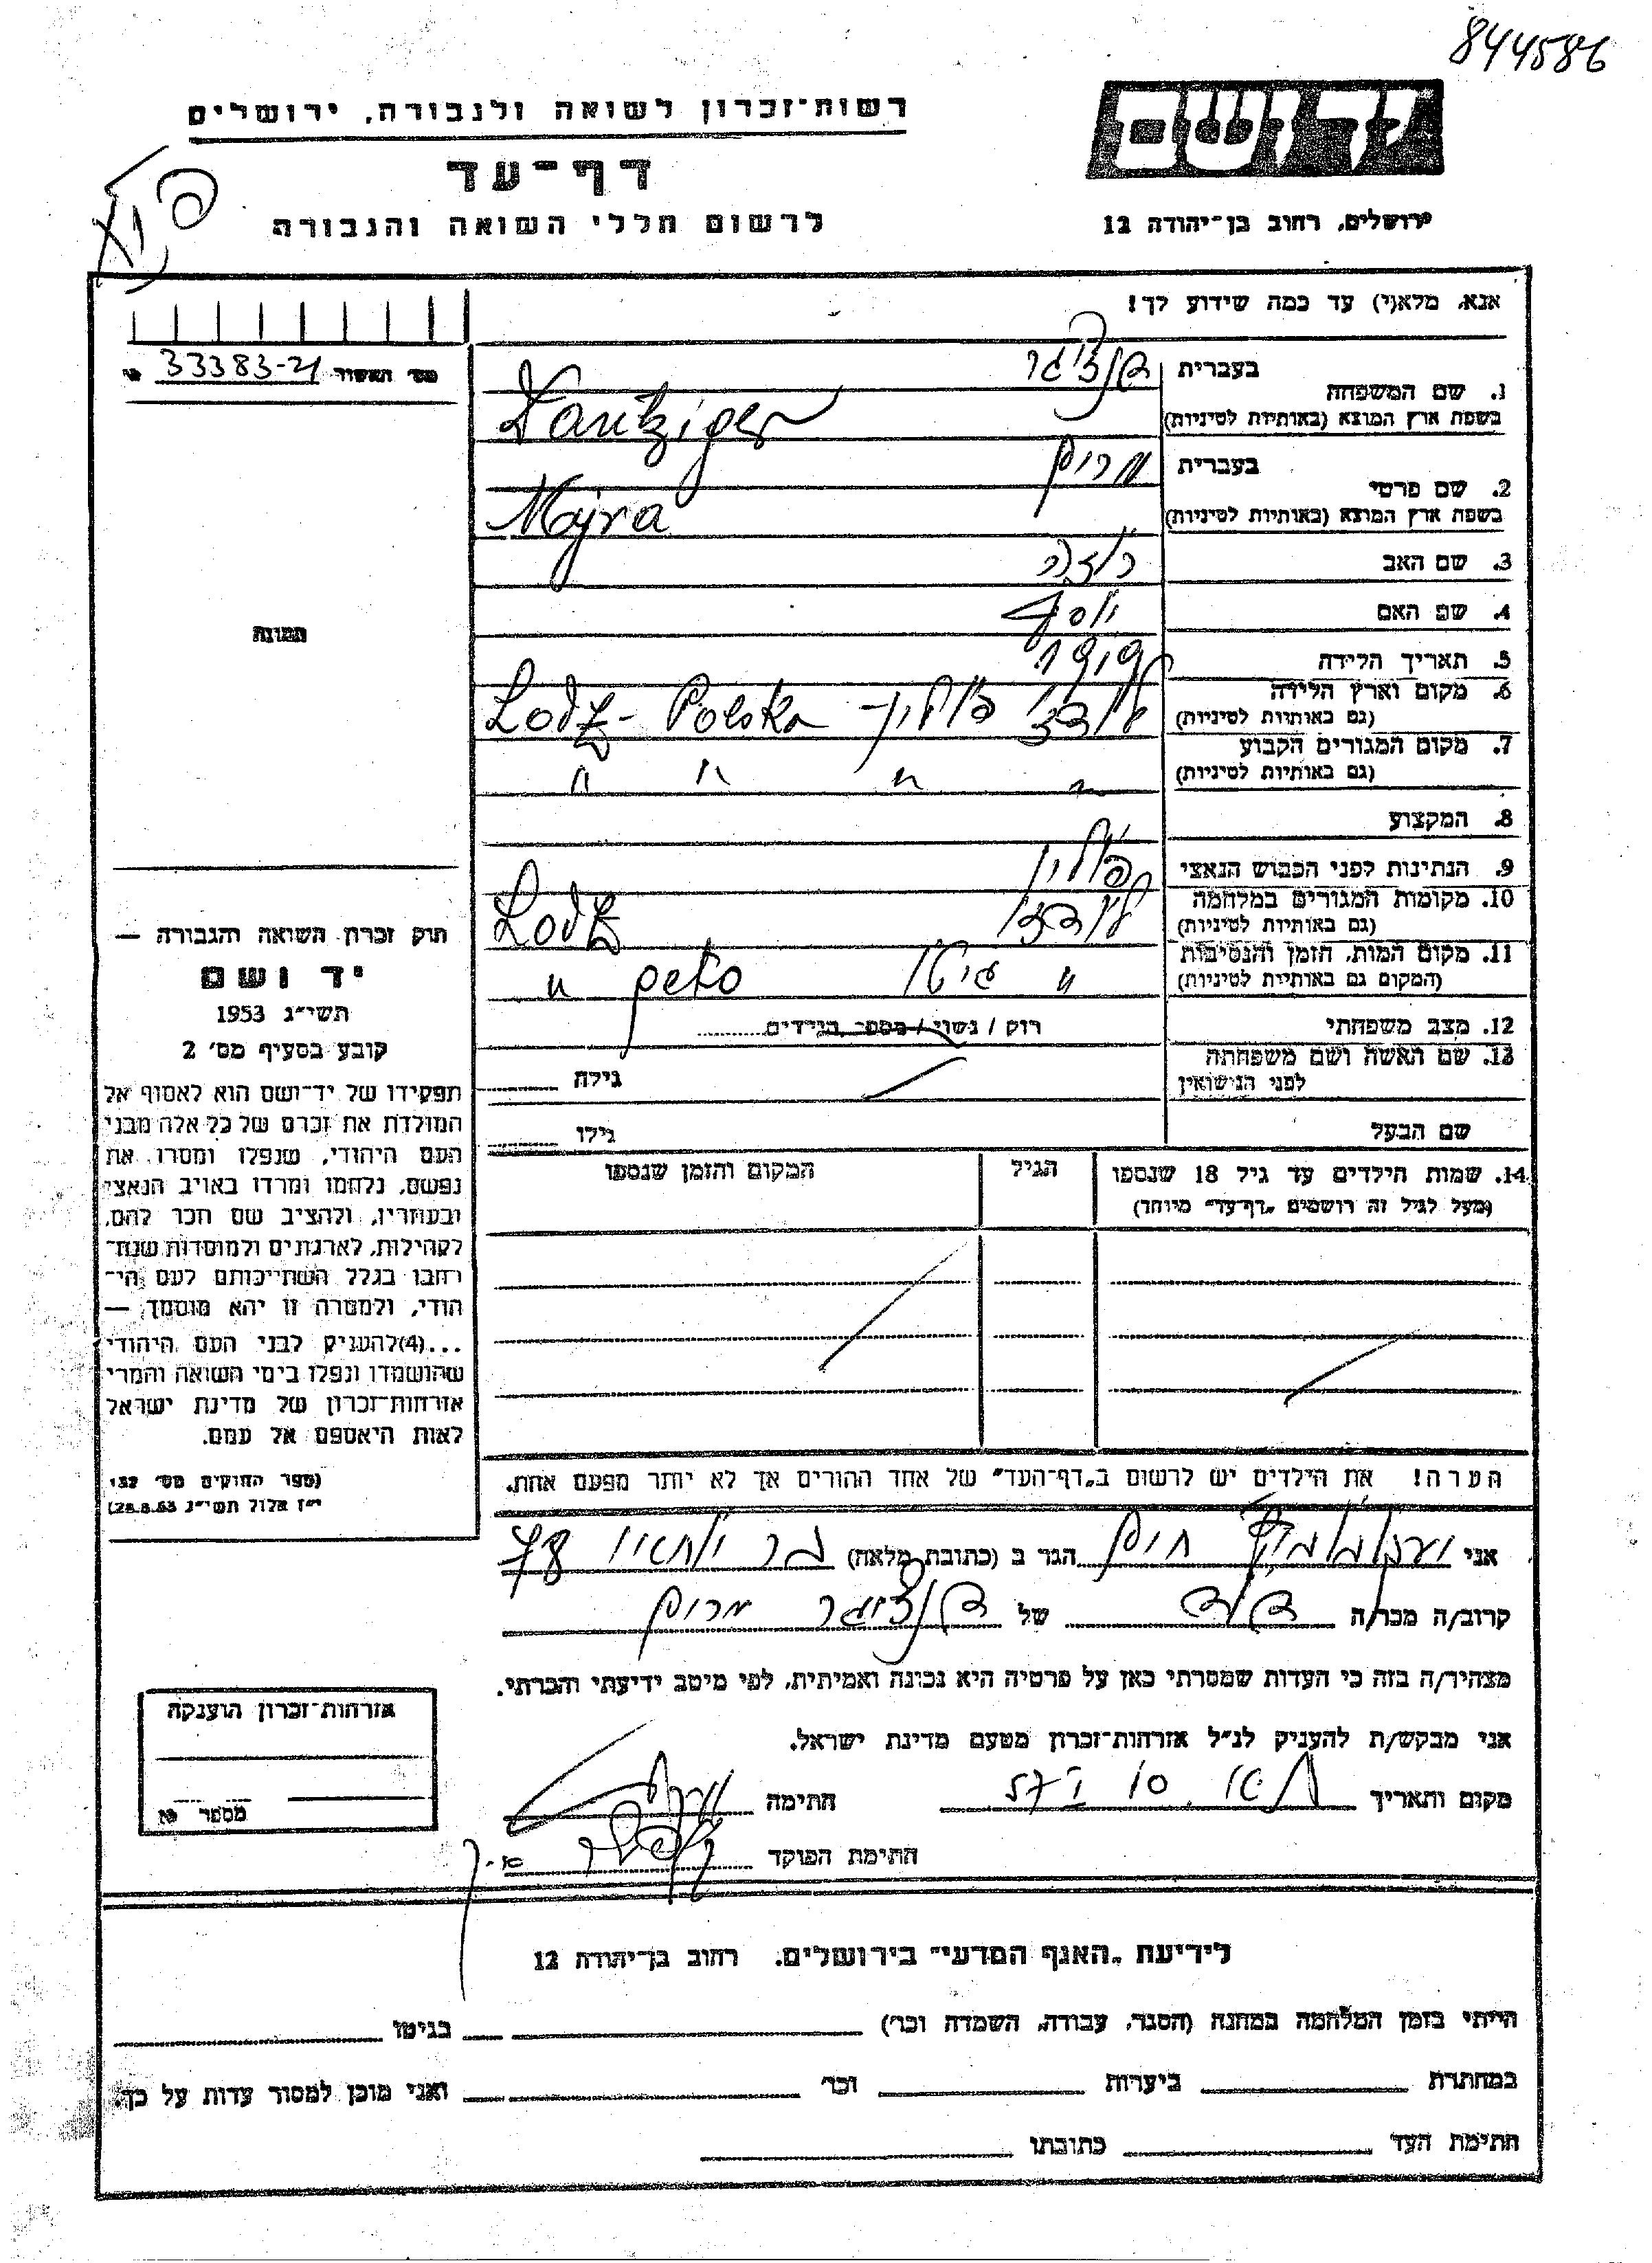 844586
רשות־זכרון לשואה ולגבורה, ירושלים
יד ושם
דף־עד
לרשום חללי השואה והגבורה
ירושלים, רחוב בן־יהודה 12
אנא, מלא(י) עד כמה שידוע לך!
מס' האשור 33383-21
1. שם המשפחה
בעברית דנציגר
בשפת ארץ המוצא (באותיות לטיניות) Dantziger
2. שם פרטי
בעברית מרים
בשפת ארץ המוצא (באותיות לטיניות) Majra
3. שם האב
4. שם האם
5. תאריך הלידה 1919
6. מקום וארץ הלידה
(גם באותיות לטיניות) לודז' פולין - Lodz - Polska
7. מקום המגורים הקבוע
(גם באותיות לטיניות) " " " "
8. המקצוע
9. הנתינות לפני הכבוש הנאצי פולין
10. מקומות המגורים במלחמה
(גם באותיות לטיניות) לודז' Lodz
11. מקום המות, הזמן והנסיבות
(המקום גם באותיות לטיניות) " גיטו "
12. מצב משפחתי רווק / נשוי / מספר הילדים
13. שם האשה ושם משפחתה
לפני הנישואין גילה
שם הבעל גילו
14. שמות הילדים עד גיל 18 שנספו
(מעל לגיל זה רושמים "דף־עד" מיוחד)
הגיל
המקום והזמן שנספו
תמונה
חוק זכרון השואה והגבורה —
יד ושם
תשי"ג 1953
קובע בסעיף מס' 2
תפקידו של יד־ושם הוא לאסוף אל
המולדת את זכרם של כל אלה מבני
העם היהודי, שנפלו ומסרו את
נפשם, נלחמו ומרדו באויב הנאצי
ובעוזריו, ולהציב שם וזכר להם,
לקהילות, לארגונים ולמוסדות שנח־
רבו בגלל השתייכותם לעם הי־
הודי, ולמטרה זו יהא מוסמך, —
...(4) להעניק לבני העם היהודי
שהושמדו ונפלו בימי השואה והמרי
אזרחות־זכרון של מדינת ישראל
לאות היאספם אל עמם.
(ספר החוקים מס' 132
י"ז אלול תשי"ג 28.8.53)
הערה! את הילדים יש לרשום ב"דף־העד" של אחד ההורים אך לא יותר מפעם אחת.
אני חיים הגר ב (כתובת מלאה)
קרוב/ה מכר/ה של דנציגר מרים
מצהיר/ה בזה כי העדות שמסרתי כאן על פרטיה היא נכונה ואמיתית, לפי מיטב ידיעתי והכרתי.
אני מבקש/ת להעניק לנ"ל אזרחות־זכרון מטעם מדינת ישראל.
מקום ותאריך חתימה
חתימת הפוקד
אזרחות־זכרון הוענקה
מספר
לידיעת "האגף המדעי" בירושלים. רחוב בן־יהודה 12
הייתי בזמן המלחמה במחנה (הסגר, עבודה, השמדה וכו') בגיטו
במחתרת ביערות וכו' ואני מוכן למסור עדות על כך.
חתימת העד כתובתו